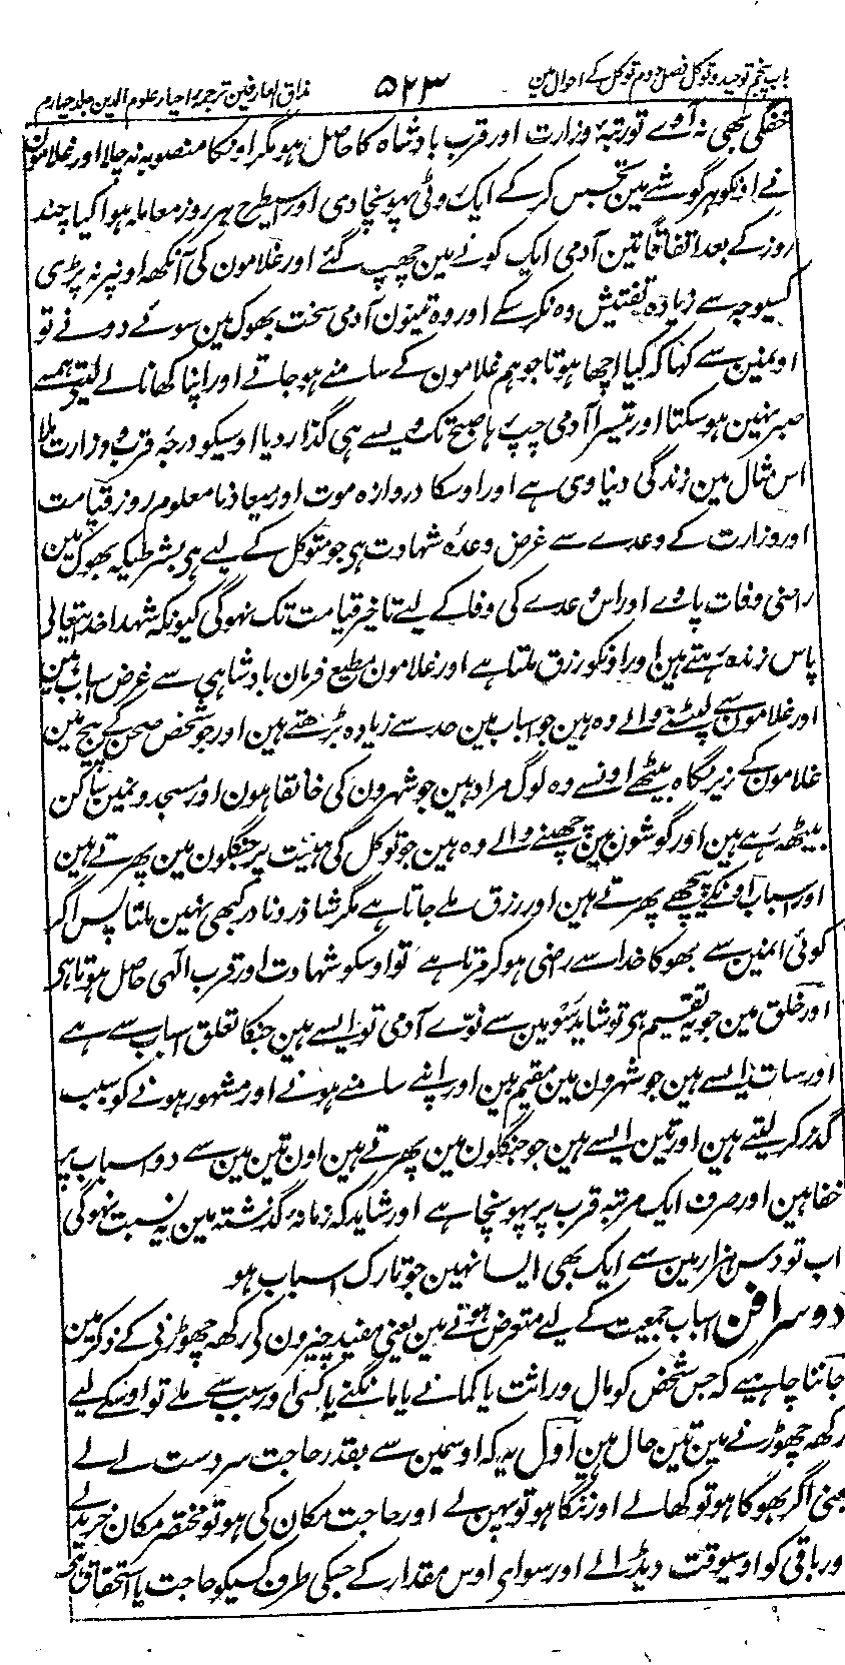 باب پنجم توحید و توکل فصل دوم توکل کے احوال مین ۵۲۳ مذاق العارفین ترجمہ احیاء علوم الدین جلد چہارم
خفگی بھی نہ آوے تو رتبۂ وزارت اور قرب بادشاہ کا حاصل ہو مگر اونکا منصوبہ نہ چلا اور غلامون
نے اونکو ہر گوشے مین تجسس کرکے ایک روٹی پہونچا دی اور اسیطرح ہر روز معاملہ ہوا کیا چند
روز کے بعد اتفاقًا تین آدمی ایک کونے مین چھپ گئے اور غلامون کی آنکھ اونپر نہ پڑی
کسیوجہ سے زیادہ تفتیش وہ نکرسکے اور وہ تینون آدمی سخت بھوک مین سوئے دو نے تو
اونمین سے کہا کہ کیا اچھا ہوتا جو ہم غلامون کے سامنے ہو جاتے اور اپنا کھانا لے لیتے ہمسے
صبر نہین ہو سکتا اور تیسرا آدمی چپ رہا صبح تک ویسے ہی گذار دیا اوسیکو درجۂ قرب و وزارت ملا
اس مثال مین زندگی دنیاوی ہے اور اوسکا دروازہ موت اور میعاد نامعلوم روز قیامت
اور وزارت کے وعدے سے غرض وعدۂ شہادت ہی جو متوکل کے لیے ہی بشرطیکہ بھوک مین
راضی وفات پاوے اور اس وعدے کی وفا کے لیے تاخیر قیامت تک نہوگی کیونکہ شہدا خداتعالی
پاس زندہ رہتے ہین اور اونکو رزق ملتا ہے اور غلامون مطیع فرمان بادشاہی سے غرض اسباب ہین
اور غلامون سے لپٹنے والے وہ ہین جو اسباب مین حد سے زیادہ بڑھتے ہین اور جو شخص صحن کے بیچ مین
غلامون کے زیر نگاہ بیٹھے اونسے وہ لوگ مراد ہین جو شہرون کی خانقاہون اور مسجدونمین ساکن
بیٹھ رہے ہین اور گوشون مین چھپنے والے وہ ہین جو توکل کی ہیئت پر جنگلون مین پھرتے ہین
اور اسباب اونکے پیچھے پھرتے ہین اور رزق ملے جاتا ہے مگر شاذ و نادر کبھی نہین ملتا پس اگر
کوئی انمین سے بھوکا خدا سے راضی ہو کر مرتا ہے تو اوسکو شہادت اور قرب الہی حاصل ہوتا ہی
اور خلق مین جو یہ تقسیم ہی تو شاید سَو مین سے نوّے آدمی تو ایسے ہین جنکا تعلق اسباب سے ہے
اور سات ایسے ہین جو شہرون مین مقیم ہین اور اپنے سامنے ہونے اور مشہور ہونے کو سبب
گذر کر لیتے ہین اور تین ایسے ہین جو جنگلون مین پھرتے ہین اون تین مین سے دو اسباب پر
خفا ہین اور صرف ایک مرتبۂ قرب پر پہونچا ہے اور شاید کہ زمانۂ گذشتہ مین یہ نسبت نہوگی
اب تو دس ہزار مین سے ایک بھی ایسا نہین جو تارک اسباب ہو
دوسرا فن اسباب جمعیت کے لیے متعرض ہونے مین یعنی مفید چیزون کی رکھ چھوڑنی کے ذکر مین
جاننا چاہیے کہ جس شخص کو مال وراثت یا کمانے یا مانگنے یا کسی اور سبب سے ملے تو اوسکے لیے
رکھ چھوڑنے مین تین حال ہین اول یہ کہ اوسمین سے بقدر حاجت سردست لے لے
یعنی اگر بھوکا ہو تو کھالے اور ننگا ہو تو پہن لے اور حاجت مکان کی ہو تو مختصر مکان خریدلے
ور باقی کو اوسیوقت دیڈالے اور سوای اوس مقدار کے جسکی طرف کسیکو حاجت یا استحقاق